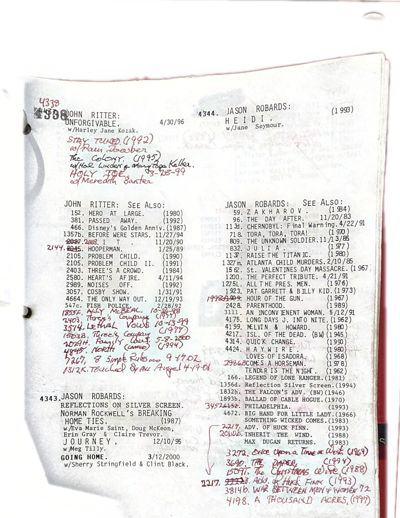 4339
JOHN RITTER:
UNFORGIVABLE. 4/30/96
w/Harley Jane Kozak.
STAY TUNED (1992)
w/Pam Dawber
The Colony. (1995)
HOLY JOE 03-28-99
w/Meredith Baxter
JOHN RITTER: See Also:
152. HERO AT LARGE. (1980)
381. PASSED AWAY. (1992)
466. Disney's Golden Anniv. (1987)
1357b. BEFORE WERE STARS. 11/27/94
I T 11/20/90
2144. HOOPERMAN. 5/89
2105. PROBLEM CHILD. (1990)
2105. PROBLEM CHILD II. (1991)
2403. THREE'S A CROWD. (1984)
2580. HEART'S AFIRE. 4/11/94
2989. NOISES OFF. (1992)
3057. COSBY SHOW. 1/31/91
547c. FISH POLICE. 2/28/92
4664. THE ONLY WAY OUT. 12/19/93
ALLY McBEAL
(1997)
4848. NORTH (cameo) (1994)
7267. 8 Simple Rules 9-17-02
4343. JASON ROBARDS:
REFLECTIONS ON SILVER SCREEN.
NORMAN ROCKWELL'S BREAKING
HOME TIES. (1987)
w/Eva Marie Saint, Doug McKeon,
Erin Gray & Claire Trevor.
J O U R N E Y. 12/10/95
w/Meg Tilly.
GOING HOME. 3/12/2000
w/Sherry Stringfield & Clint Black.
4344. JASON ROBARDS:
H E I D I. (1993)
w/Jane Seymour.
JASON ROBARDS: See Also:
59. Z A K H A R O V. (1984)
96. THE DAY AFTER. 11/20/83
113b. CHERNOBYL: Final Warning. 4/22/91
718. TORA, TORA, TORA! (1970)
809. THE UNKNOWN SOLDIER. 11/13/85
832. J U L I A. (1977)
1137. RAISE THE TITANIC. (1980)
1327a. ATLANTA CHILD MURDERS. 2/10/85
1562. St. VALENTINES DAY MASSACRE. (1967
1200. THE PERFECT TRIBUTE. 4/21/91
1251. ALL THE PRES. MEN. (1976)
1923. PAT GARRETT & BILLY KID. (1973)
HOUR OF THE GUN. (1967)
2428. PARENTHOOD. (1989)
3111. AN INCONVENIENT WOMAN. 5/12/91
4175. LONG DAYS J. INTO NITE. (1962)
4199. MELVIN & HOWARD. (1980)
4217. ISL. OF THE DEAD. (BW) (1945)
4314. QUICK CHANGE. (1990)
4424. H A Y W I R E. (1980)
LOVES OF ISADORA. (1968)
COMES A HORSEMAN. (1978)
TENDER IS THE NIGHT. (1962)
166. LEGEND OF LONE RANGER. (1981)
1356d. Reflection Silver Screen. (1994)
1832b. THE FALCON'S ADV. (BW) (1946)
1893b. BALLAD OF CABLE HOGUE. (1970)
PHILADELPHIA. (1993)
4672. BIG BAND FOR LITTLE LADY. (1966)
SOMETHING WICKED COMES. (1983)
2217. ADV. OF HUCK FINN. (1993)
INHERIT THE WIND. (1988)
MAX DUGAN RETURNS. (1983)
3272. Once Upon a Time in West (1969)
3640. THE PAPER (1994)
1509F. THE CHRISTMAS WIFE (1988)
2217. ADV. of HUCK FINN (1993)
3814b. WAR BETWEEN MEN & WOMEN '72
4198. A THOUSAND ACRES, (1997)